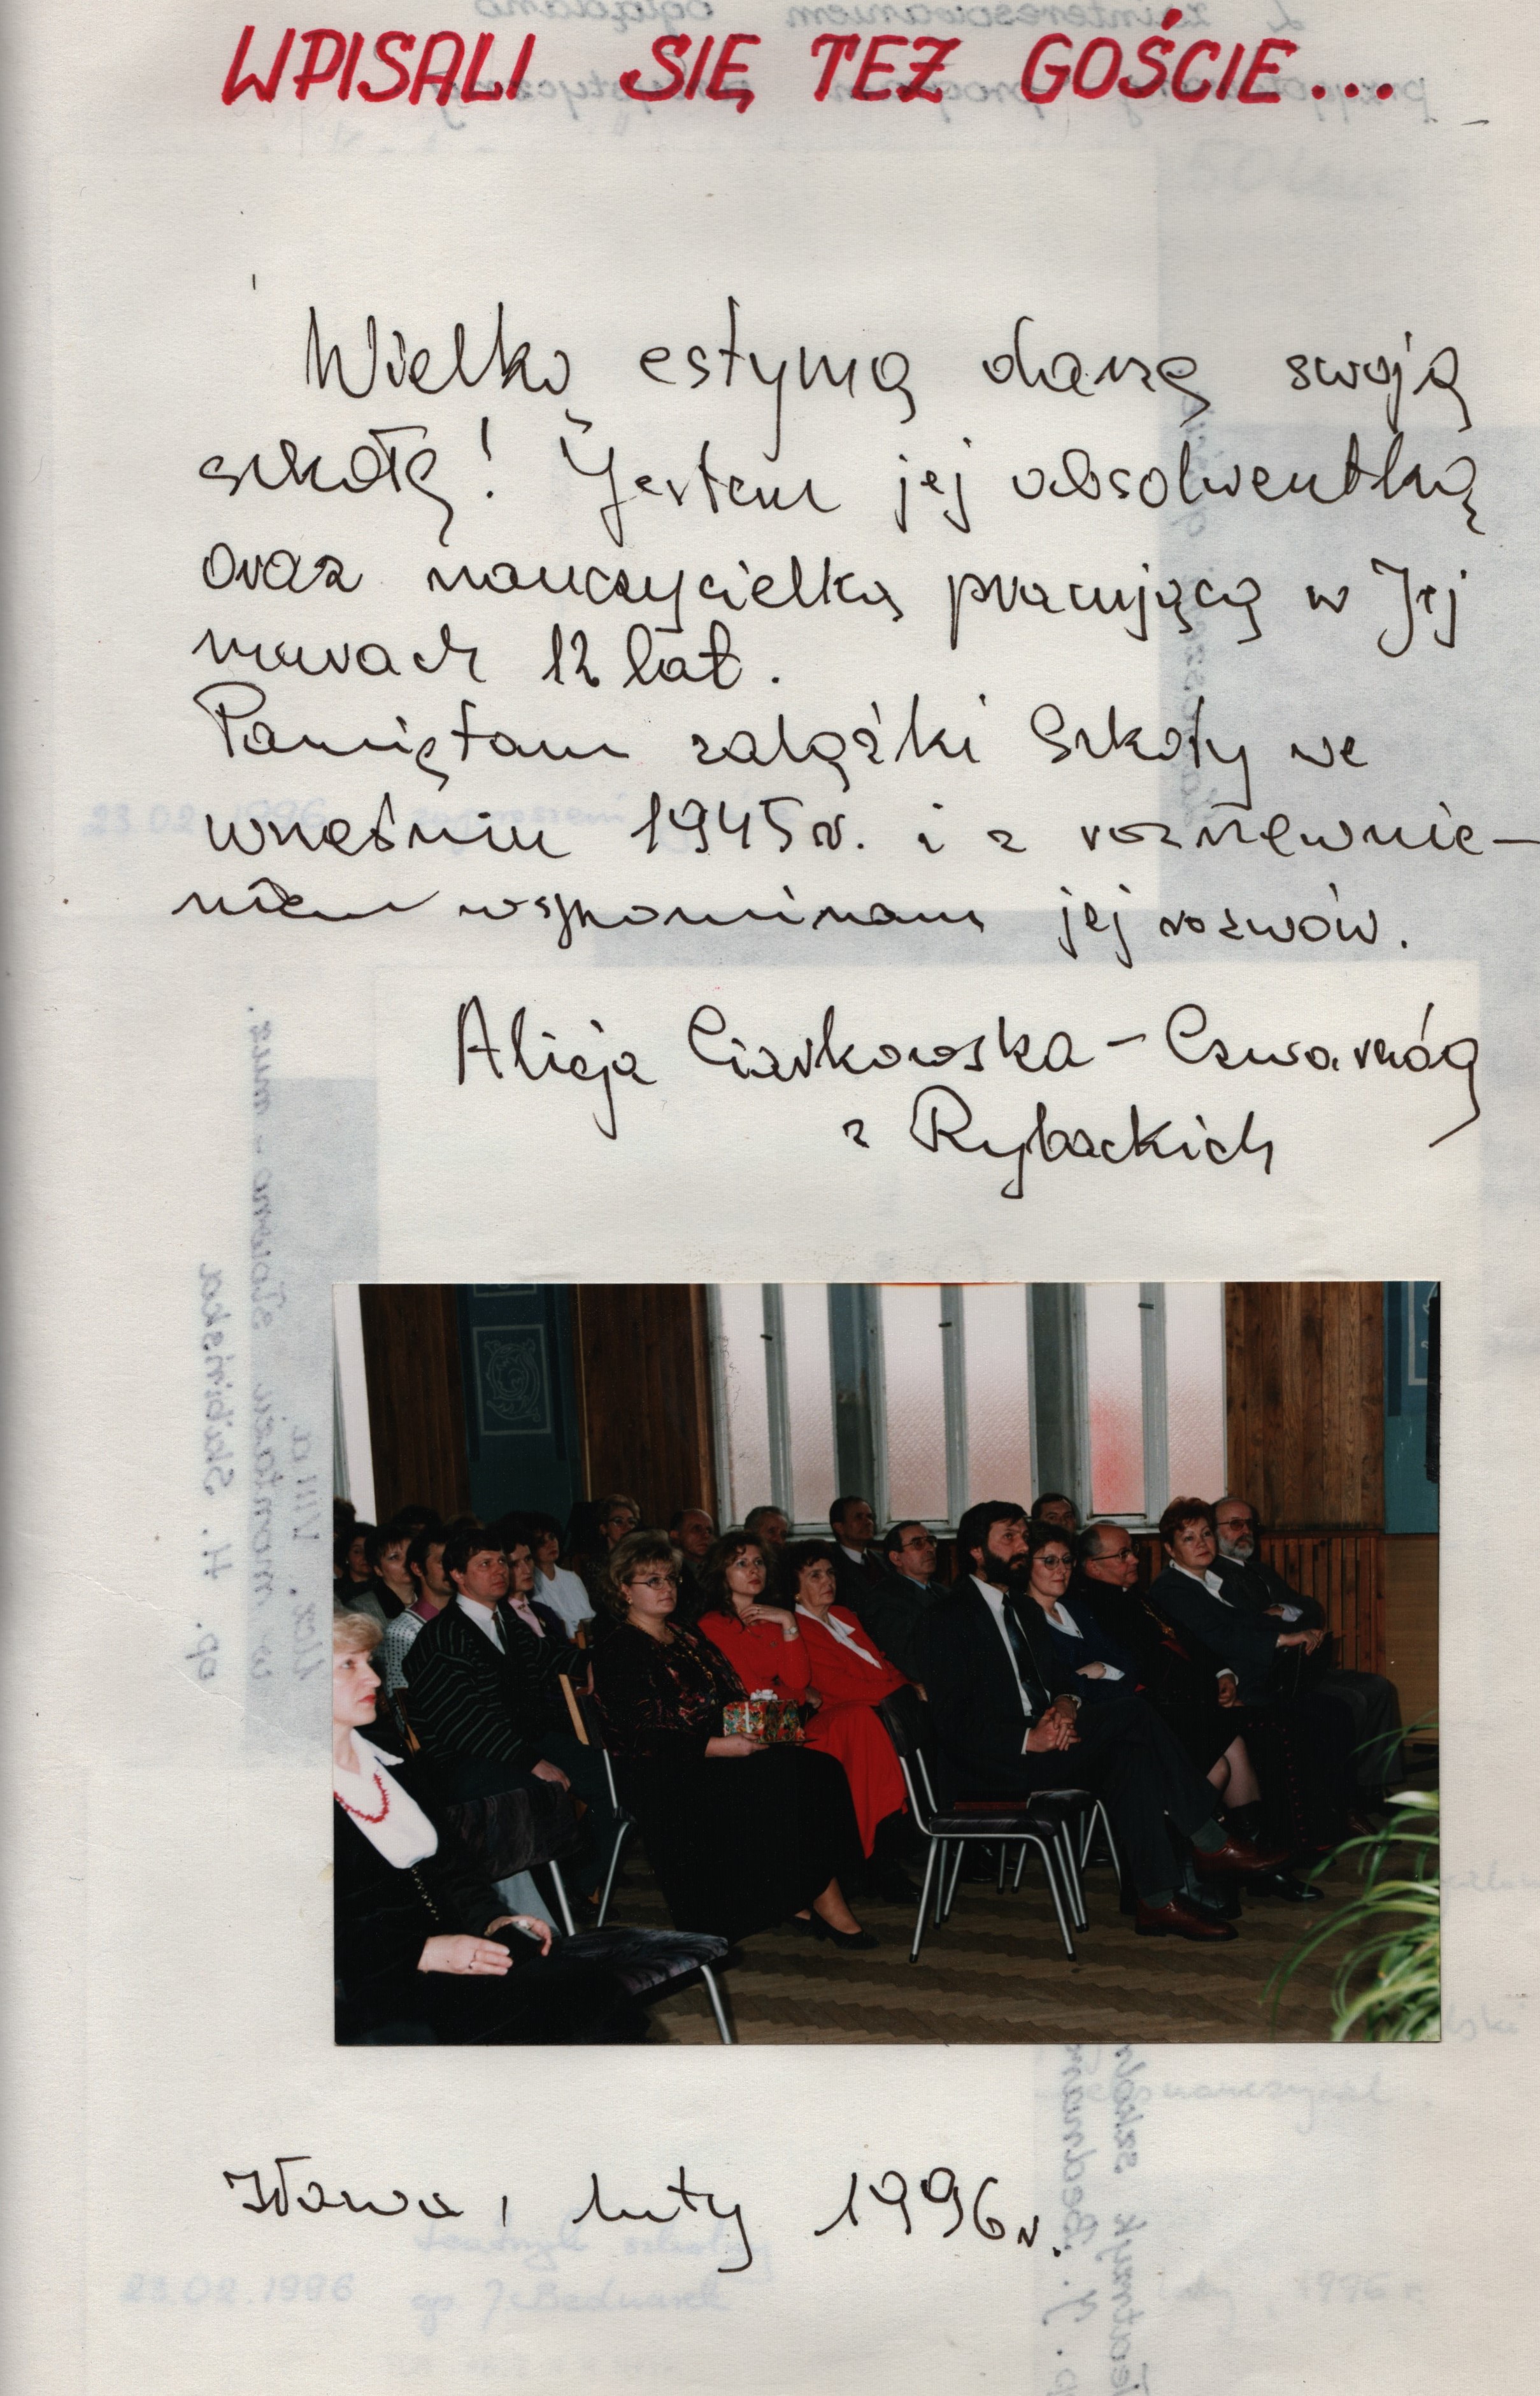 WPISALI SIĘ TEŻ GOŚCIE...
Wielką estymą darzę swoją
szkołę! Jestem jej absolwentką
oraz nauczycielką pracującą w Jej
murach 12 lat.
Pamiętam zalążki Szkoły we
wrześniu 1945 r. i z rozrzewnie-
niem wspominam jej rozwój.
Alicja Ciarkowska - Czwarnóg
z Rybackich
Iława, luty 1996 r.